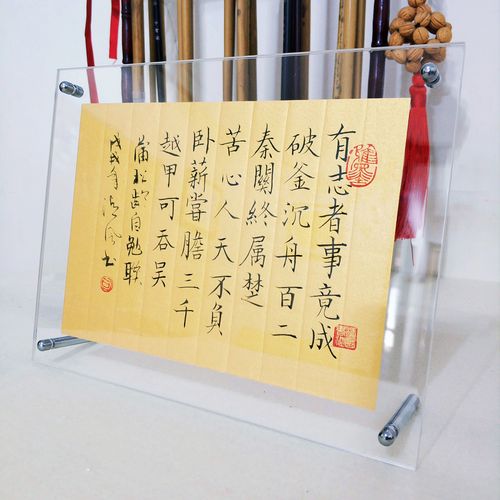 有志者事竟成
破釜沉舟百二
秦關終属楚
苦心人天不負
卧薪嘗膽三千
越甲可吞吴
蒲松龄自勉联
戊戌年清风书